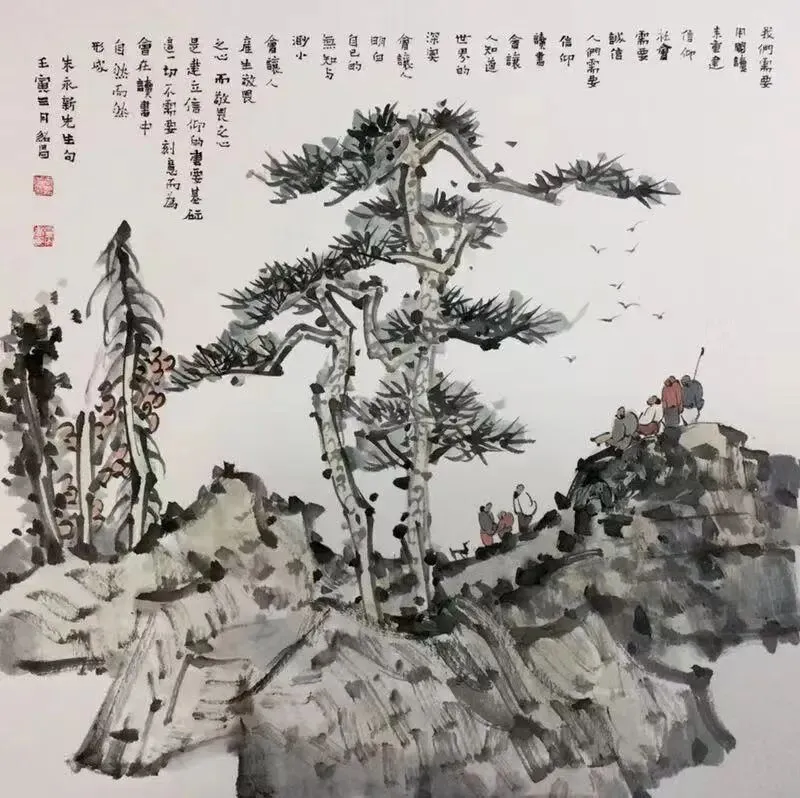 我們需要
用閱讀
来重建
信仰
社會
需要
誠信
人們需要
信仰
讀書
會讓
人知道
世界的
深奧
會讓人
明白
自己的
無知与
渺小
會讓人
產生敬畏
之心 而敬畏之心
是建立信仰的重要基础
這一切不需要刻意而為
會在讀書中
自然而然
形成
朱永新先生句
壬寅三月紹昌